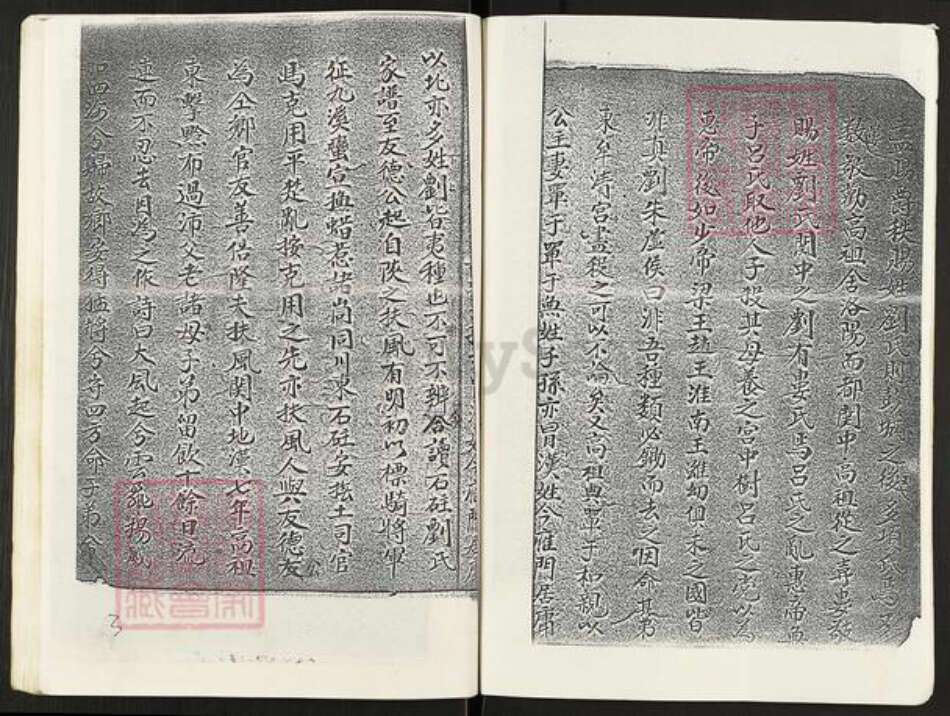 賜姓劉氏則彭城之後多項氏
敬敬勸高祖舍洛陽而都関中高祖從之尊婁敬
賜姓劉氏関中之劉有婁氏焉吕氏之亂惠帝無
子吕氏取他人子殺其母養之宮中樹吕氏之党以為
惠帝後如少帝梁王趙王淮南王雖幼但未之國皆
非真劉朱虛侯曰非吾種類必鋤而去之因命其弟
東牟清宮盡從之可以不論矣又高祖與單于和親以
公主妻單于單于無姓子孫亦冒漢姓今雁門居庸
以北亦多姓劉皆夷種也不可不辨合讀石砫劉氏
家譜至友德公起自陝之扶風有明初以標騎將軍
征九溪蠻宣撫蜡惹諸峝同川東石砫安撫土司官
馬克用平楚亂接克用之先亦扶風人與友德友
為仝鄉官友善信隆夫扶風関中地漢七年高祖
東擊黥布過沛父老諸母子弟留飲十餘日流
連而不忍去因為之作詩曰大風起兮雲飛揚威
加四海兮歸故鄉安得猛將兮守四方命子弟
3